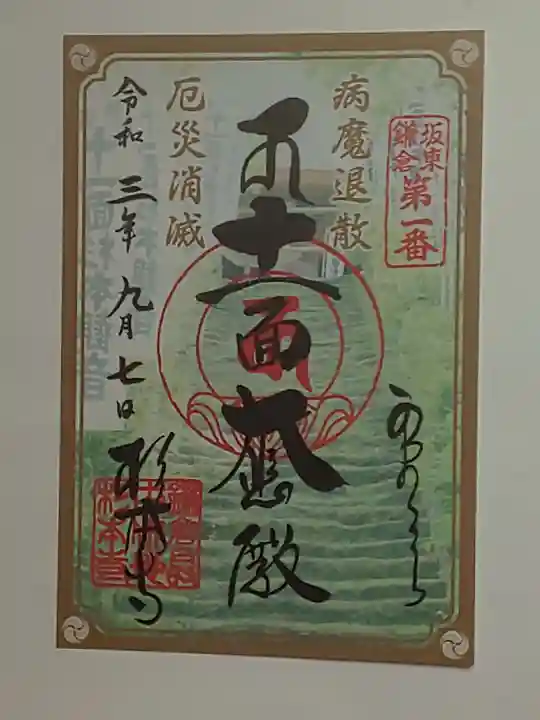 坂東
鎌倉
第一番
病魔退散
十一面大悲殿
厄災消滅
令和三年九月七日
杉本寺